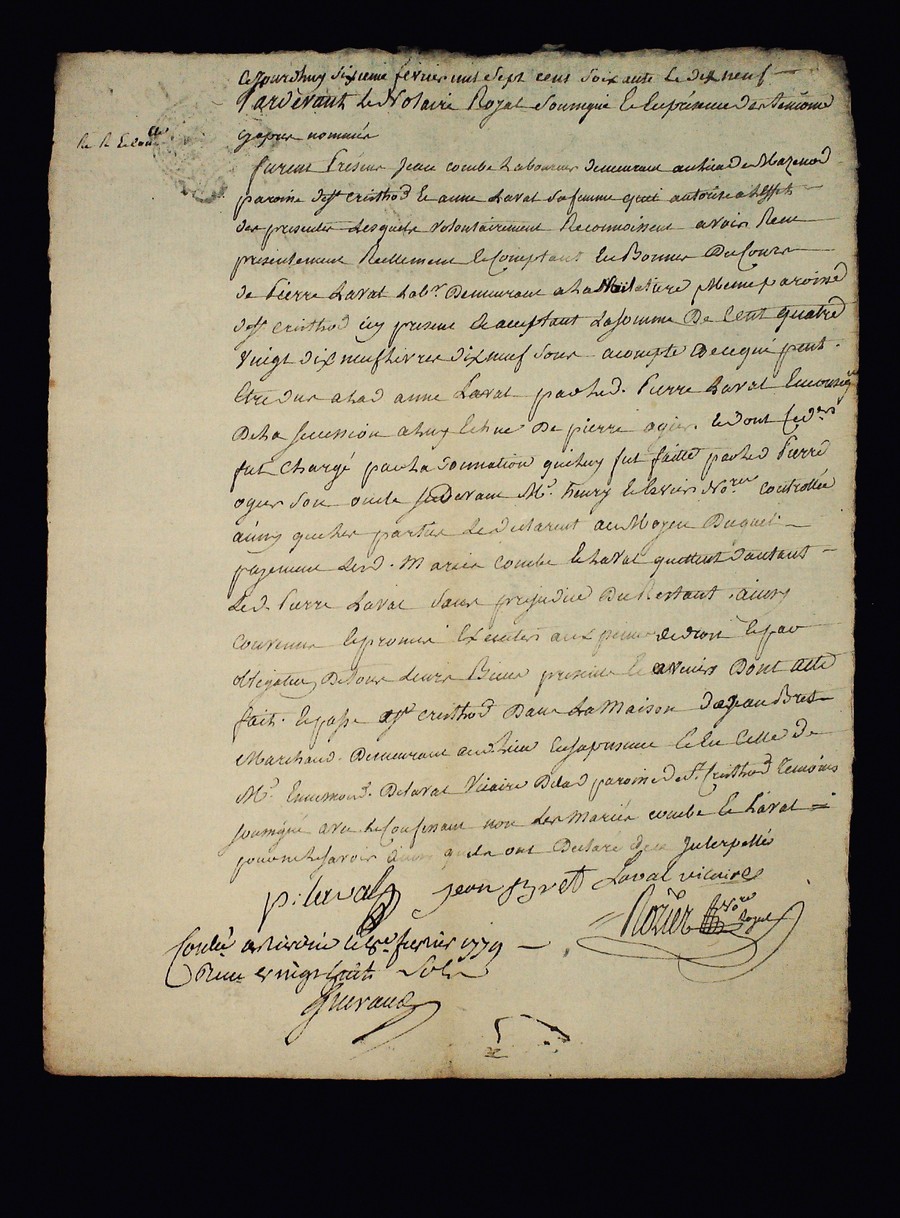 Cejourdhuy sixieme fevrier mil sept cent soixante et dix neuf
Pardevant le Notaire Royal soussigné et en presence des temoins
cy apres nommés
furent Presens Jean combe Laboureur demeurant au lieu de Mazenod
paroisse de st cristhod et anne Laval sa femme quil autorise a leffet
des presentes Lesquels volontairement Reconnoissent avoir Reçu
presentement Reellement et Comptant en Bonnes De Cours
de Pierre Laval Labr Demeurant a la meme paroisse
de st cristhod icy present et acceptant La somme De Cent quatre
vingt dix neuf livres dix neuf sous a compte de ce qui peut
Etre du a lad anne Laval par led. Pierre Laval
De la succession a luy echue De pierre ogier. et dont led
fut chargé par La Donnation qui luy fut faitte par led Pierre
ogier son oncle pardevant Me. henry et Nores controllée
ainsy que les parties le declarent au Moyen Duquel
payement lesd. Mariés combe et Laval quittent dautant
led. Pierre Laval sans prejudice Du Restant. ainsy
convenu et promis Executer aux peines de droit et par
obligation De tous leurs Biens presents et avenirs Dont acte
fait et passé a st cristhod Dans La Maison de Jean Bret
Marchand. Demeurant aud. lieu En sa presence et En Celle de
Me. Ennemond. De Laval Vicaire De lad paroisse de st. Cristhod temoins
soussignés avec le Confessant non les Mariés combe et Laval
pour ne le savoir ainsy quils ont Declaré de ce Interpellé
p: laval Jean Bret Laval vicaire
Rozier Nore Royal
Contlé le 8e fevrier 1779
Reçu vingt huit Sols